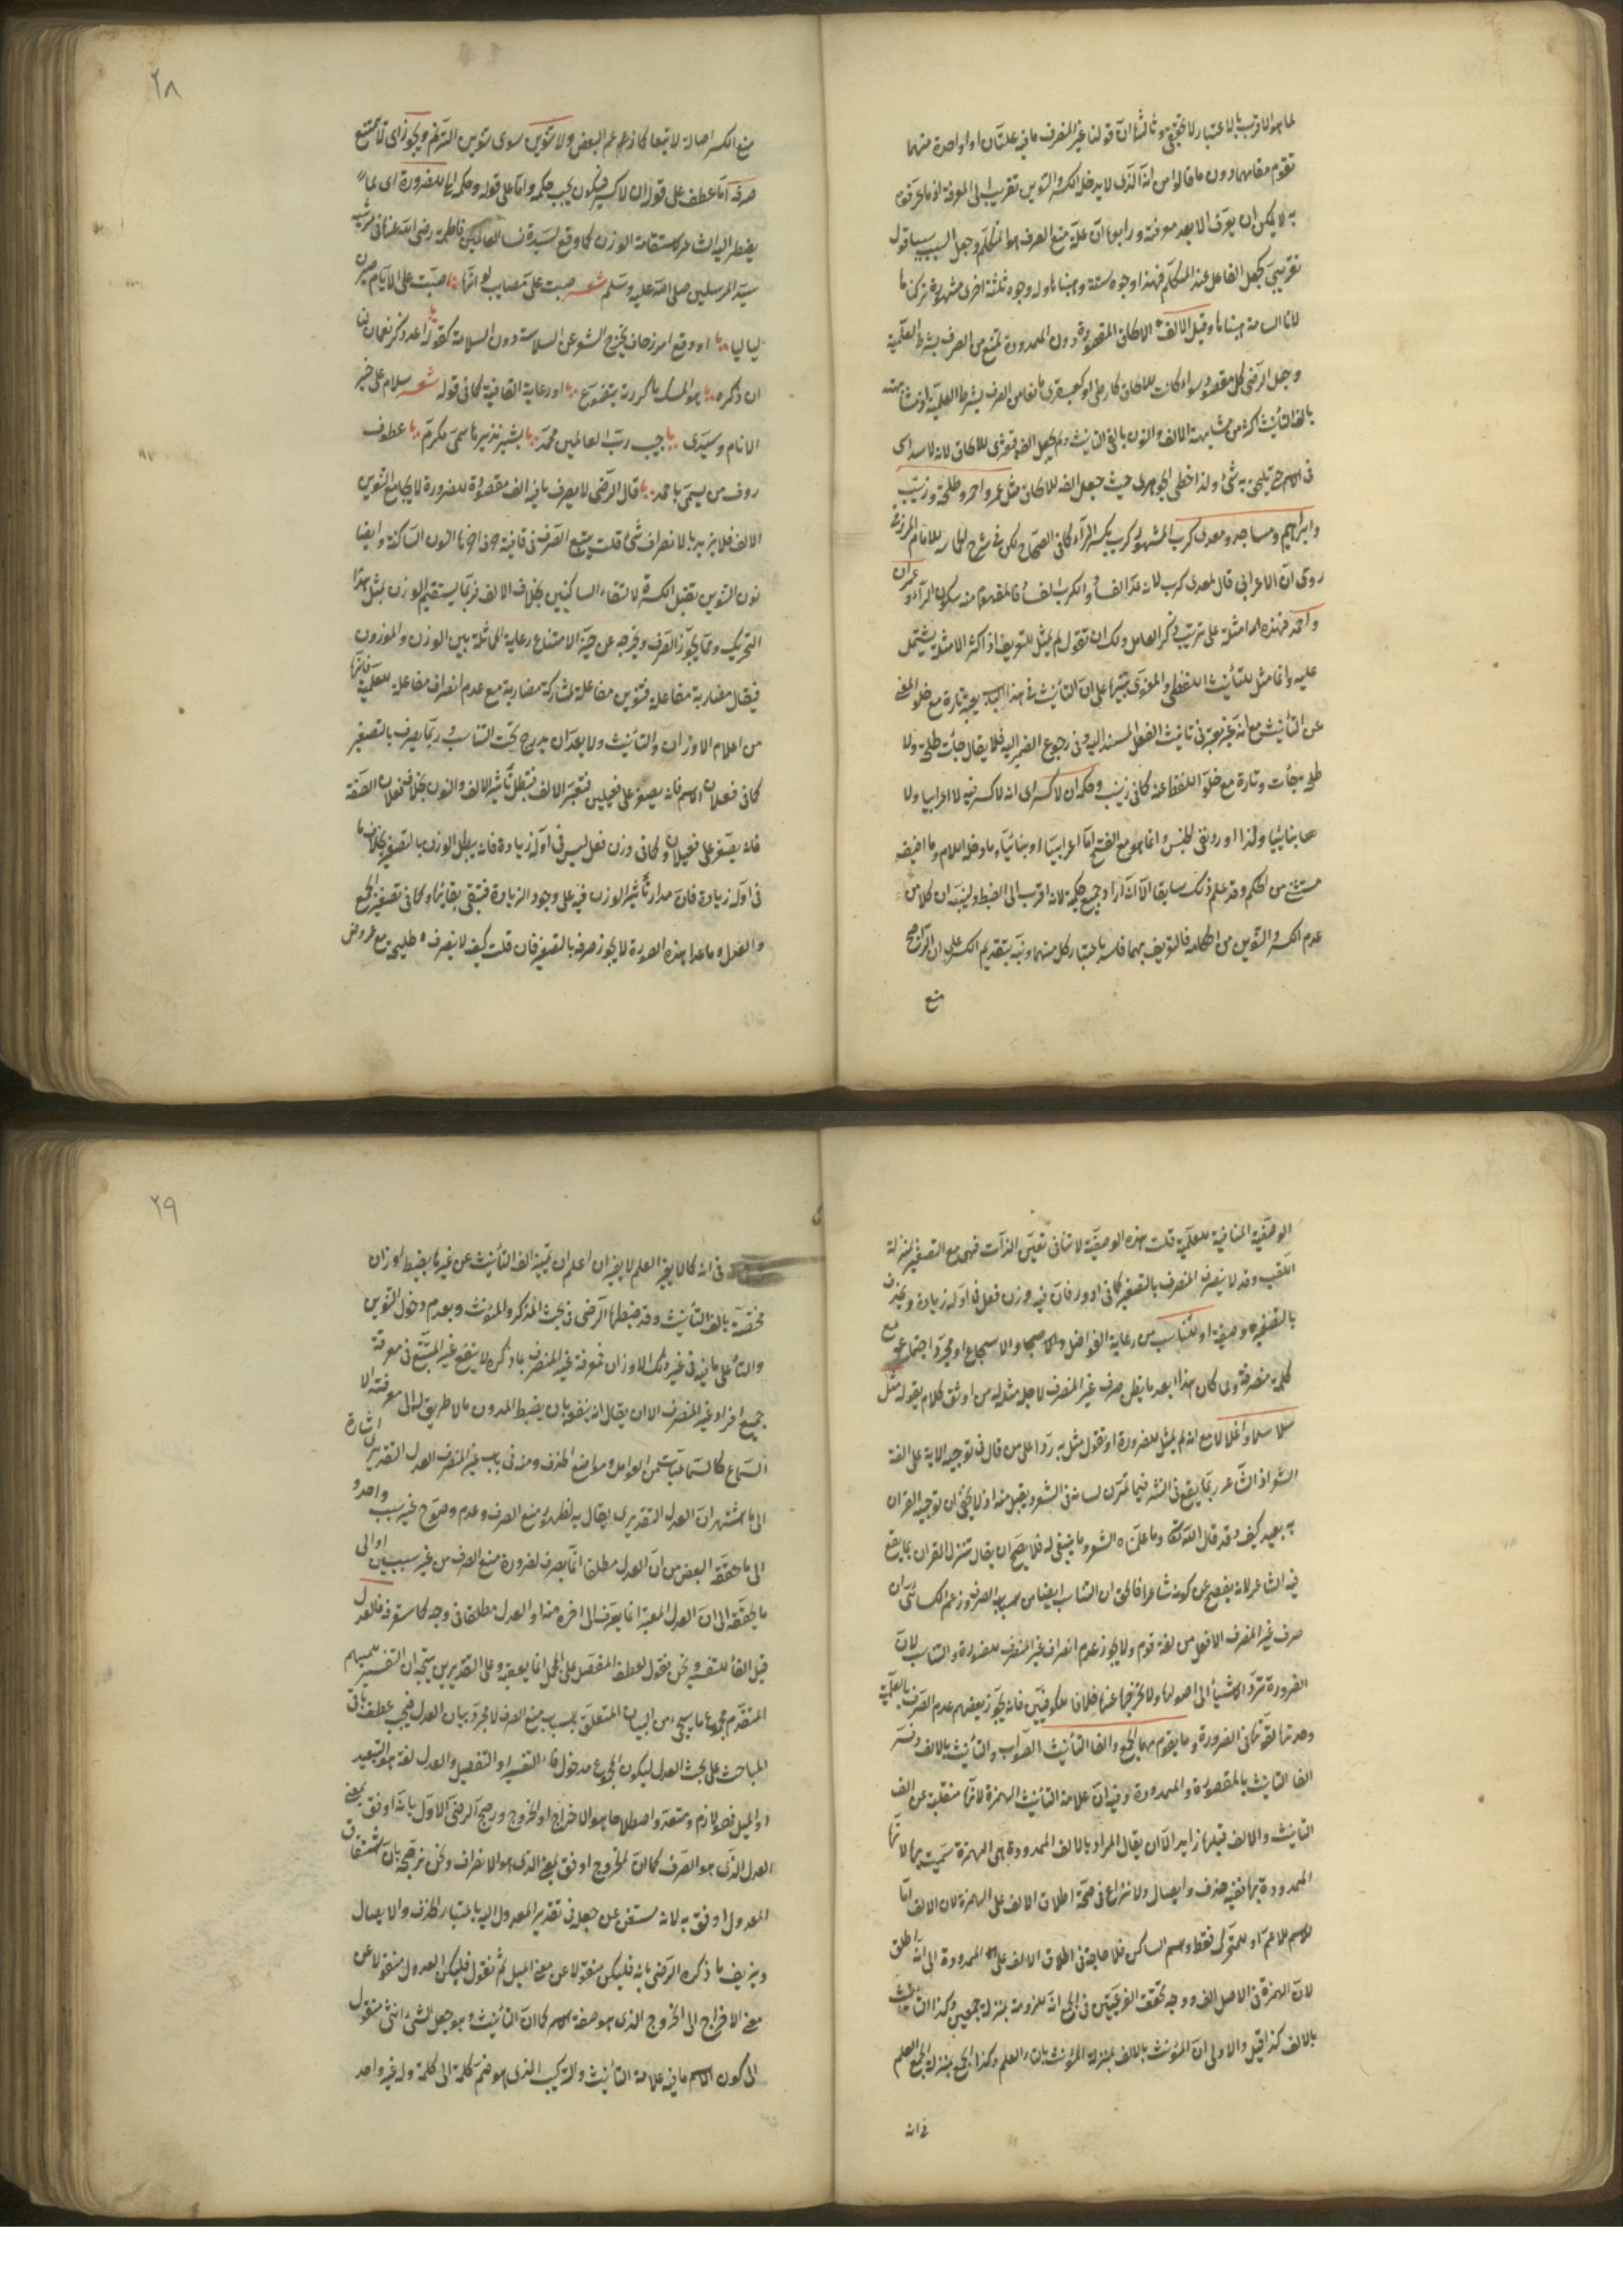 لما هو الاقرب بالاعتبار لا تحقيقى وثالثها ان قولنا غير المنصرف ما فيه علتان او واحدة منهما
تقوم مقامهما دون ما قالوا من انه الذى لا يدخله الكسر والتنوين تقريب الى المعرفة اذ ما عرفوه
به لا يمكن ان يعرف الا بعد معرفته ورابعها ان علة منع الصرف هو المتكلم وجعل السبب سببا قول
تقريبى كجعل الفاعل عند المتكلم فهذا وجوه ستة وله وجوه ثلثة اخرى مشهورة تركناها
وقيل الالف الالحاق المقصورة دون الممدودة تمنع من الصرف بشرط العلمية
وجعل الرضى كل مقصورة سواء كانت للالحاق كارطى او كقبعثرى مانعا من الصرف بشرط العلمية
بالف التأنيث اكثر من مشابهة الالف والنون بالفى التأنيث ولم يجعل الف قبعثرى للالحاق لانه لا سداسى
فى الاسم حتى يلحق به شئ ولذا خطئ الجوهرى حيث جعل الفه للالحاق مثل عمر واحمر وطلحة وزينب
وابراهيم ومساجد ومعدى كرب المشهور كرب بكسر الراء كما فى الصحاح لكن فى شرح
روى ان الاعرابى قال لمعدى كرب لانه عدا الفساد والكرب الفساد فالمفهوم منه سكون الراء وعمران
واحمد فهذه الامثلة على ترتيب ذكر العامل ولك ان تقول لم يمثل للتعريف اذ اكثر الامثلة يشتمل
عليه وانما مثل للتأنيث اللفظى والمعنوى تنبيها على ان التأنيث فى هذا الباب يعتبر تارة مع خلو المعنى
عن التأنيث مع انه غير معتبر فى تانيث الفعل المسند اليه وفى رجوع الضمير اليه فلا يقال جاءت طلحة ولا
طلحة جاءت وتارة مع خلو اللفظ عنه كما فى زينب وحكمه ان لا كسر اى انه لا كسر فيه لا اعرابيا ولا
بنائيا ولذا اورد نفى الجنس وانما هو مع الفتح اما اعرابيا او بنائيا وما دخله اللام وما اضيف
مستثنى من الحكم وقد علم ذلك سابقا الا انه اراد جميع حكمه لانه اقرب الى الضبط ولينبه ان كلا من
عدم الكسر والتنوين من احكامه فالتعريف بهما فاسد باعتبار كل منهما ونبه بتقديم الكسر على ان الراجح
منع
٢٨
منع الكسر اصالة لا تبعا كما زعم البعض ولا تنوين سوى تنوين الترنم ويجوز اى لا يمتنع
صرفه اما عطف على قوله ان لا كسر فيكون تحت حكمه واما على قوله وحكمه للضرورة اى لما
يضطر اليه الشاعر كاستقامة الوزن كما وقع لسيدة نساء العالمين فاطمة رضى الله عنها فى مرثية
سيد المرسلين صلى الله عليه وسلم شعر صبت على مصايب لو انها صبت على الايام صرن
لياليا او وقع امر زحاف يخرج الشعر عن السلاسة دون السلامة كقوله اعد ذكر نعمان لنا
ان ذكره هو المسك ما كررته يتضوع او رعاية القافية كما فى قوله شعر سلام على خير
الانام وسيدى حبيب رب العالمين محمد بشير نذير هاشمى مكرم عطوف
روف من يسمى باحمد قال الرضى لا يصرف ما فيه الف مقصورة للضرورة لا يجامع التنوين
الالف فلا يزيد بالانصراف شئ قلت يمتنع الصرف فى قافية النون الساكنة وايضا
نون التنوين تقبل الكسرة لالتقاء الساكنين بخلاف الالف فربما يستقيم الوزن بمثل هذا
التحريك ومما يجوز الصرف ويخرجه عن حيز الامتناع رعاية المماثلة بين الوزن والموزون
فيقال مضاربة مفاعلة فتنوين مفاعلة لمشاركة مضاربة مع عدم انصراف مفاعلة للعلمية فانها
من اعلام الاوزان والتأنيث ولا يبعد ان يدرج تحت التناسب وربما يصرف بالتصغير
كما فى فعلان الاسم فانه يصغر على فعيلين فتغير الالف فتبطل تأثير الالف والنون بخلاف فعلان الصفة
فانه يصغر على فعيلان وكما فى وزن فعل ليس فى اوله زيادة فانه يبطل الوزن بالتصغير بخلاف ما
فى اوله زيادة فان مدار تأثير الوزن فيه على وجود الزيادة فتبقى ببقائها وكما فى تصغير الجمع
والعدل وما عدا هذه الصورة لا يجوز صرفه بالتصغير فان قلت كيف لا ينصرف طليحة مع عروض
الوصفية المنافية للعلمية قلت هذه الوصفية لا تنافى تعين الذات فهى مع التصغير بمنزلة
اللقب وقد لا ينصرف المنصرف بالتصغير كما فى ادور فان فيه وزن فعل فى اوله زيادة وتغير
بالتصغير وصفية او للتناسب من رعاية الفواصل والاسجاع او مجرد اجتماعه مع
كلمة منصرفة ولما كان هذا ابعد ما يظن صرف غير المنصرف لاجل مثله من اوثق كلام بقوله مثل
سلاسلا واغلالا مع انه لم يمثل للضرورة او نقول مثل به ردا على من قال فى توجيه الاية على لغة
الشعر اذ الشاعر ربما يقع فى النثر فيما تمرن لسانه فى الشعر ويقبل منه اذ لا يخفى ان توجيه القران
به بعيد كيف وقد قال الله تعالى وما علمناه الشعر وما ينبغى له فلا يصح ان يقال تنزل القران بما يقع
فيه الشاعر لانه يفصح عن كونه شاعرا فالحق ان التناسب ايضا من اسباب الصرف وزعم الكسائى ان
صرف غير المنصرف الا افعل من لغة قوم ولا يجوز عدم انصراف غير المنصرف للضرورة والتناسب لان
الضرورة ترد الاشياء الى اصولها ولا تخرجها عنها خلافا للكوفيين فانه يجوز بعضهم عدم الصرف بالعلمية
وحدها لقوتها فى الضرورة وما يقوم مقامهما الجمع والفا التأنيث الصواب والتأنيث بالالف وفسر
الفا التانيث بالمقصورة والممدودة وفيه ان علامة التأنيث الهمزة لانها منقلبة عن الف
التانيث والالف قبلها زايد الا ان يقال المراد بالالف الممدودة هى الهمزة سميت بها لانها
الممدودة بها ففيه حذف وايصال ولا نزاع فى صحة اطلاق الالف على الهمزة لان الالف اما
اسم للاعم او للمتحرك فقط واسم الساكن فلا حاجة فى اطلاق الالف على الممدودة الى انه اطلق
لان الهمزة فى الاصل الف ووجه تحقق الفرعيتين فى الجمع انه للزومه بمنزلة جمعين وكذا التأنيث
بالالف كذا قيل والاولى ان المؤنث بالالف بمنزلة المؤنث بالتاء والعلم وكذا الجمع بمنزلة الجمع العلم
فى انه
٢٩
فى انه كما لا يغير العلم لا يغيران اعلم ان تميز الف التأنيث عن غيرها بضبط اوزان
مختصة بالف التأنيث وقد ضبطها الرضى فى بحث المذكر والمؤنث وبعدم دخول التنوين
والتاء على ما فيه فى غير تلك الاوزان فمعرفة غير المنصرف بما ذكره لا ينفع غير المتتبع فى معرفة
جميع افراد غير المنصرف الا ان يقال انه ينفعه بان يضبط المدون مالا طريق لنا الى معرفته الا
السماع كالسماعيات من العوامل ومواضع الحذف ومنه فى باب غير المنصرف العدل التقديرى اشارة
الى ما اشتهر ان العدل التقديرى يقال به لظهور منع الصرف وعدم وضوح غير سبب واحد و
الى ما حققه البعض من ان العدل مطلقا انما يعرف لضرورة منع الصرف من غير سببين او الى
ما حققه الى ان العدل المعتبر انما يعرف الى اخره منه او العدل مطلقا فى وجه كما ستعرفه فالعدل
قيل الفاء للتفسير ونحن نقول لعطف المفصل على المجمل انما يعقبه وعلى التقديرين يتجه ان التفسير
المتقدم مجموع ما سيجئ من البيان المتعلق باسباب منع الصرف لا مجرد بيان العدل فيجب عطف باقى
المباحث على بحث العدل ليكون المجموع مدخول فاء التفسير او التفصيل والعدل لغة هو التبعيد
او الميل فهو لازم ومتعد واصطلاحا هو الاخراج او الخروج ورجح الرضى الاول بانه اوفق بمعنى
العدل الذى هو الصرف كما ان الخروج اوفق بمعنى الذى هو الانصراف ونحن نرجحه بان اشتقاق
المعدول اوفق به لانه مستغن عن جعل فى تقدير المعدول اليه باعتبار الحذف والايصال
ونزيف ما ذكره الرضى بانه فليكن منقولا عن معنى الميل ثم نقول فليكن العدول منقولا عن
معنى الاخراج الى الخروج الذى هو صفة الاسم كما ان التأنيث وهو جعل الشئ انثى منقول
الى كون الاسم ما فيه علامة التأنيث والتركيب الذى هو ضم كلمة الى كلمة وله غير واحد